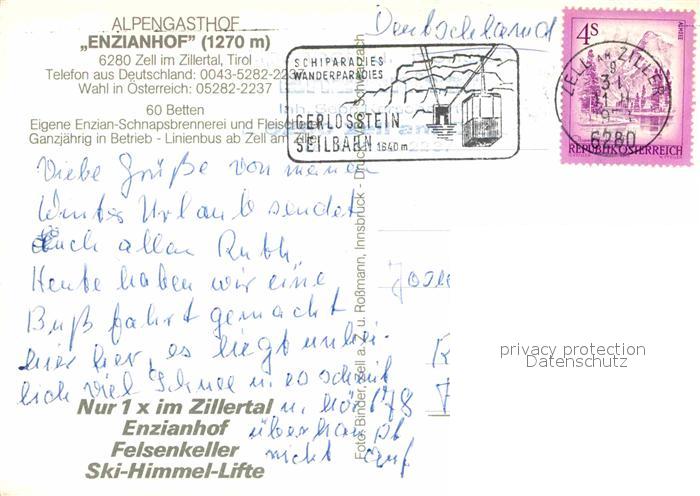 ALPENGASTHOF
„ENZIANHOF" (1270 m)
6280 Zell im Zillertal, Tirol
Telefon aus Deutschland: 0043-5282-223
Wahl in Österreich: 05282-2237
60 Betten
Eigene Enzian-Schnapsbrennerei und Fleische
Ganzjährig in Betrieb - Linienbus ab Zell am Ziller
Deutschland
SCHIPARADIES
WANDERPARADIES
GERLOSSTEIN
SEILBAHN 1640 m
ZELL AM ZILLER
6280
4S
REPUBLIK ÖSTERREICH
Liebe Grüße von meinem
Winter Urlaub sendet
Euch allen Ruth.
Heute haben wir eine
Busfahrt gemacht
hier, es liegt unheim-
lich viel Schnee u. es schneit
u. hört
überhaupt
nicht auf
Nur 1 x im Zillertal
Enzianhof
Felsenkeller
Ski-Himmel-Lifte
Foto: Binder, Zell a. Z. u. Roßmann, Innsbruck - Druck:
privacy protection
Datenschutz